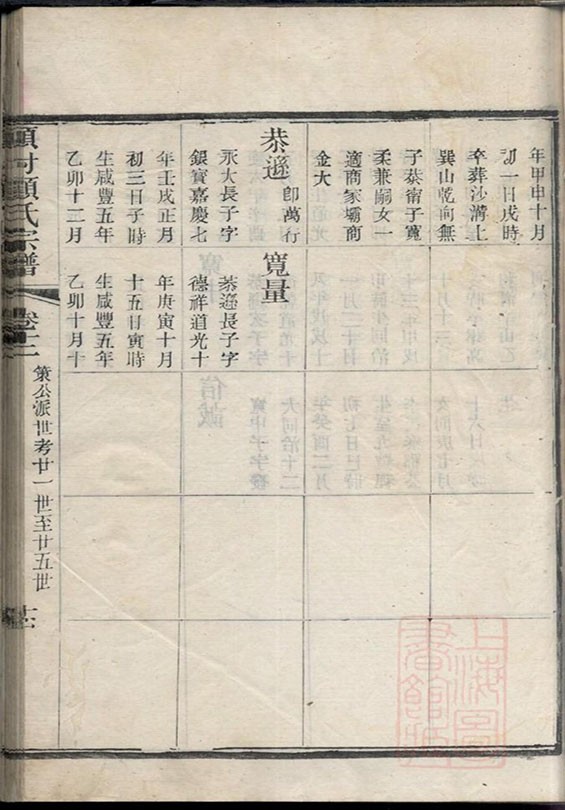 年甲申十月
初一日戌時
卒葬沙溝上
巽山乾向無
子恭甯子寬
柔兼嗣女一
適商家壩商
金大
恭遜 卽萬行
永大長子字
銀寶嘉慶七
年壬戌正月
初三日子時
生咸豐五年
乙卯十二月
寬量
恭遜長子字
德祥道光十
年庚寅十月
十五日寅時
生咸豐五年
乙卯十月十
顧氏宗譜
卷十二
策公派世考廿一世至廿五世
上海圖書館藏